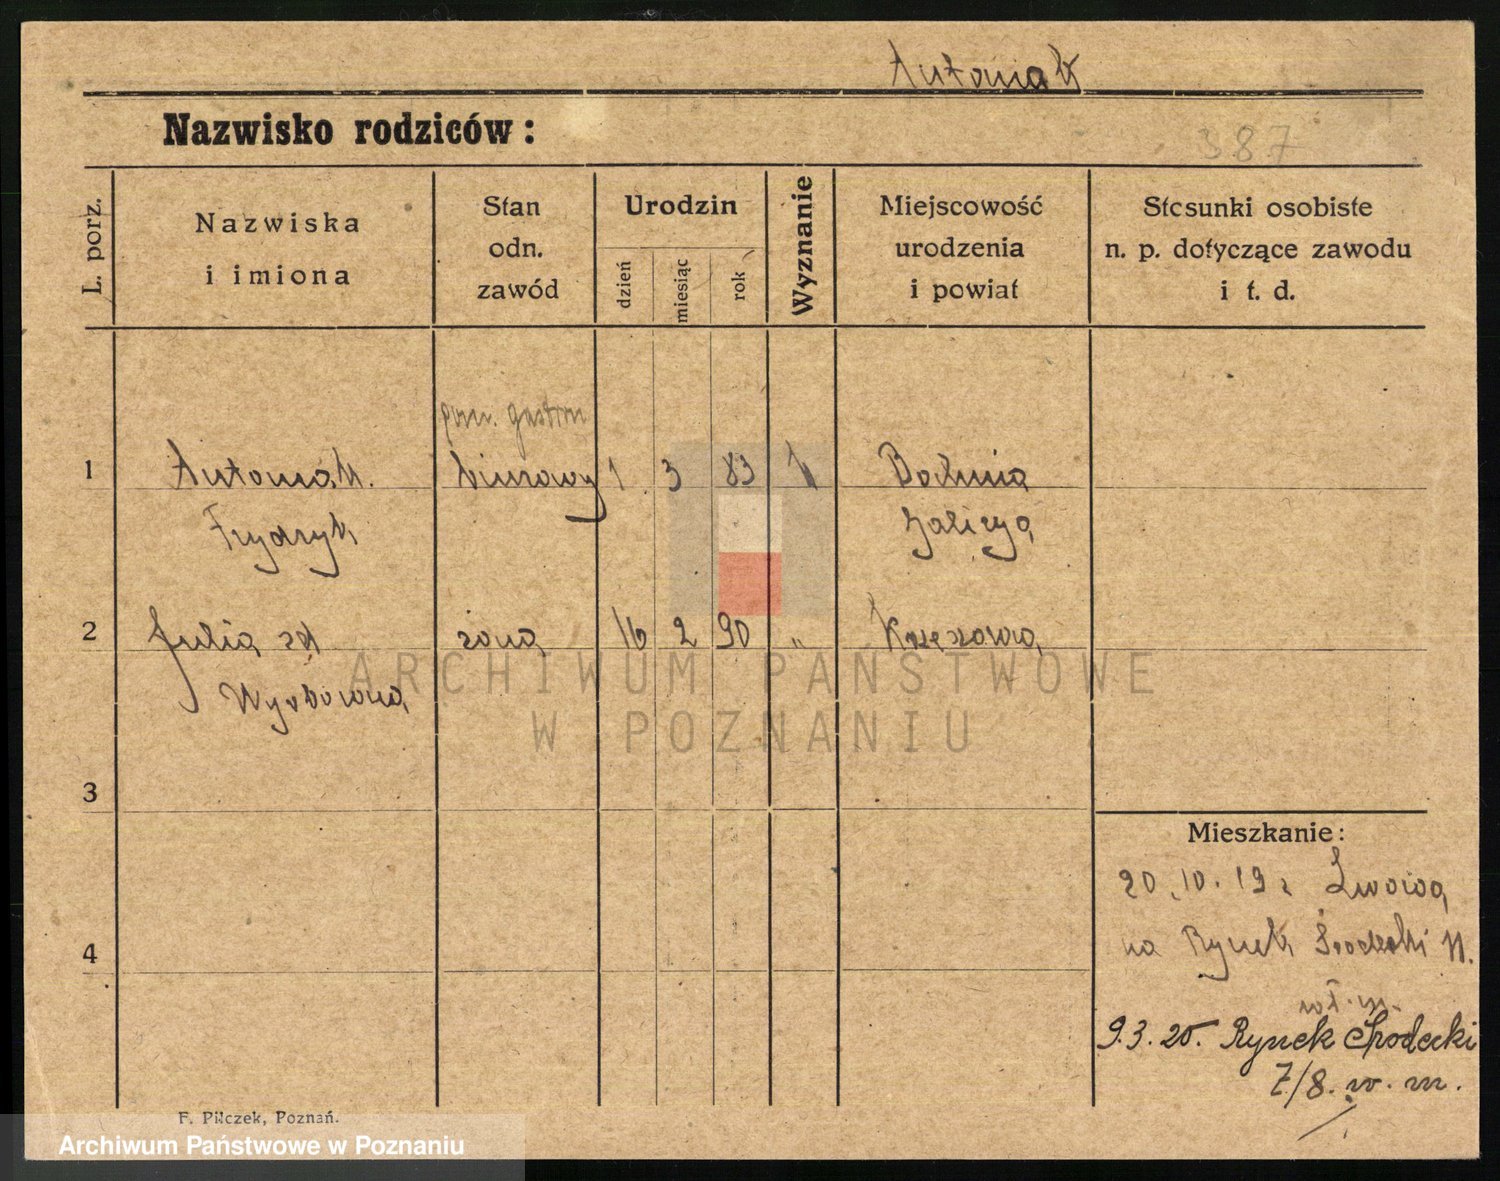 Antoniak
Nazwisko rodziców:
387
L. porz.
Nazwiska
i imiona
Stan
odn.
zawód
Urodzin
dzień
miesiąc
rok
Wyznanie
Miejscowość
urodzenia
i powiat
Stosunki osobiste
n. p. dotyczące zawodu
i t. d.
pom. gastron
1 Antoniak. biurowy 1 3 83 Bochnia
Frydryk Galicya
2 Julia zd żona 16 2 90 "
3
4
Mieszkanie:
20.10.19 z Lwowa
na Rynek Środecki
9.3.25. Rynek Środecki
7/8. w. m.
F. Pilczek, Poznań.
ARCHIWUM PAŃSTWOWE
W POZNANIU
Archiwum Państwowe w Poznaniu